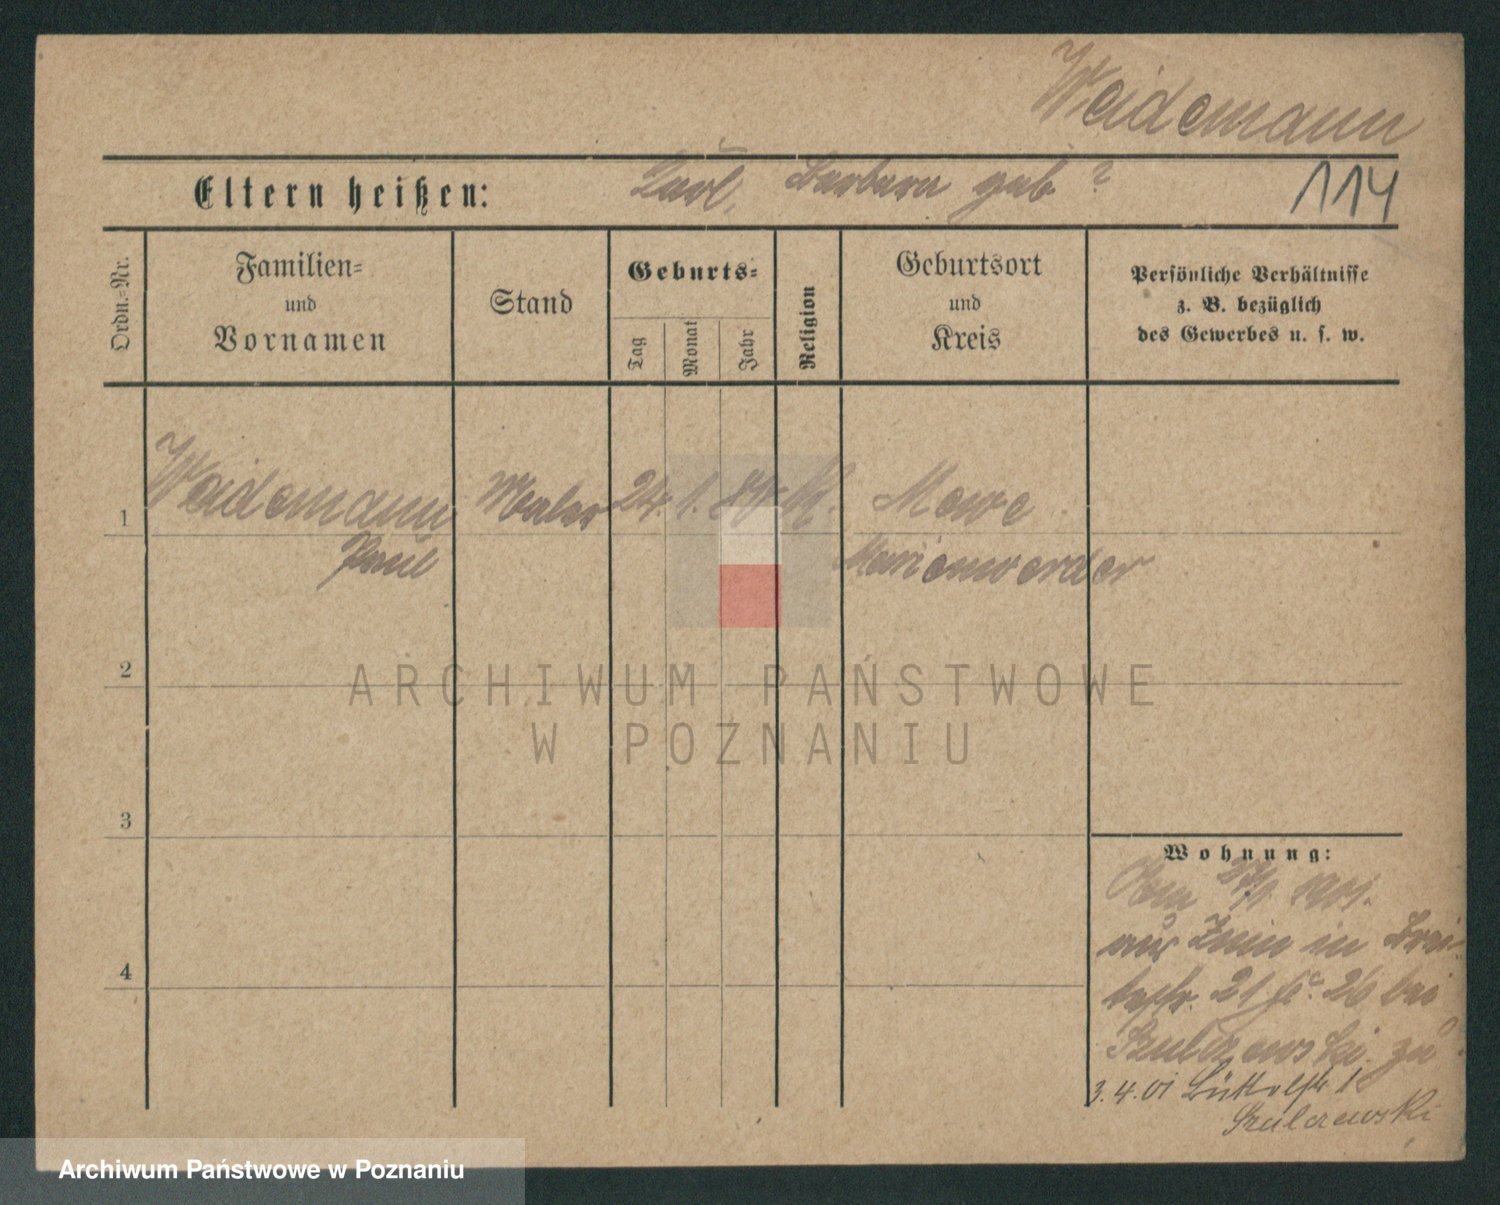 Weidemann
Eltern heißen: Carl, Barbara geb ?
114
Ordn.=Nr.
Familien=
und
Vornamen
Stand
Geburts=
Tag
Monat
Jahr
Religion
Geburtsort
und
Kreis
Persönliche Verhältnisse
z. B. bezüglich
des Gewerbes u. s. w.
1 Weidemann Maler 24. 1. Mewe
Paul Marienwerder
2
ARCHIWUM PAŃSTWOWE
W POZNANIU
3
4
Wohnung:
1901.
aus Znin in Brei-
testr. 21 26 bei
Szulczewski zu
3.4.01
Szulczewski
Archiwum Państwowe w Poznaniu